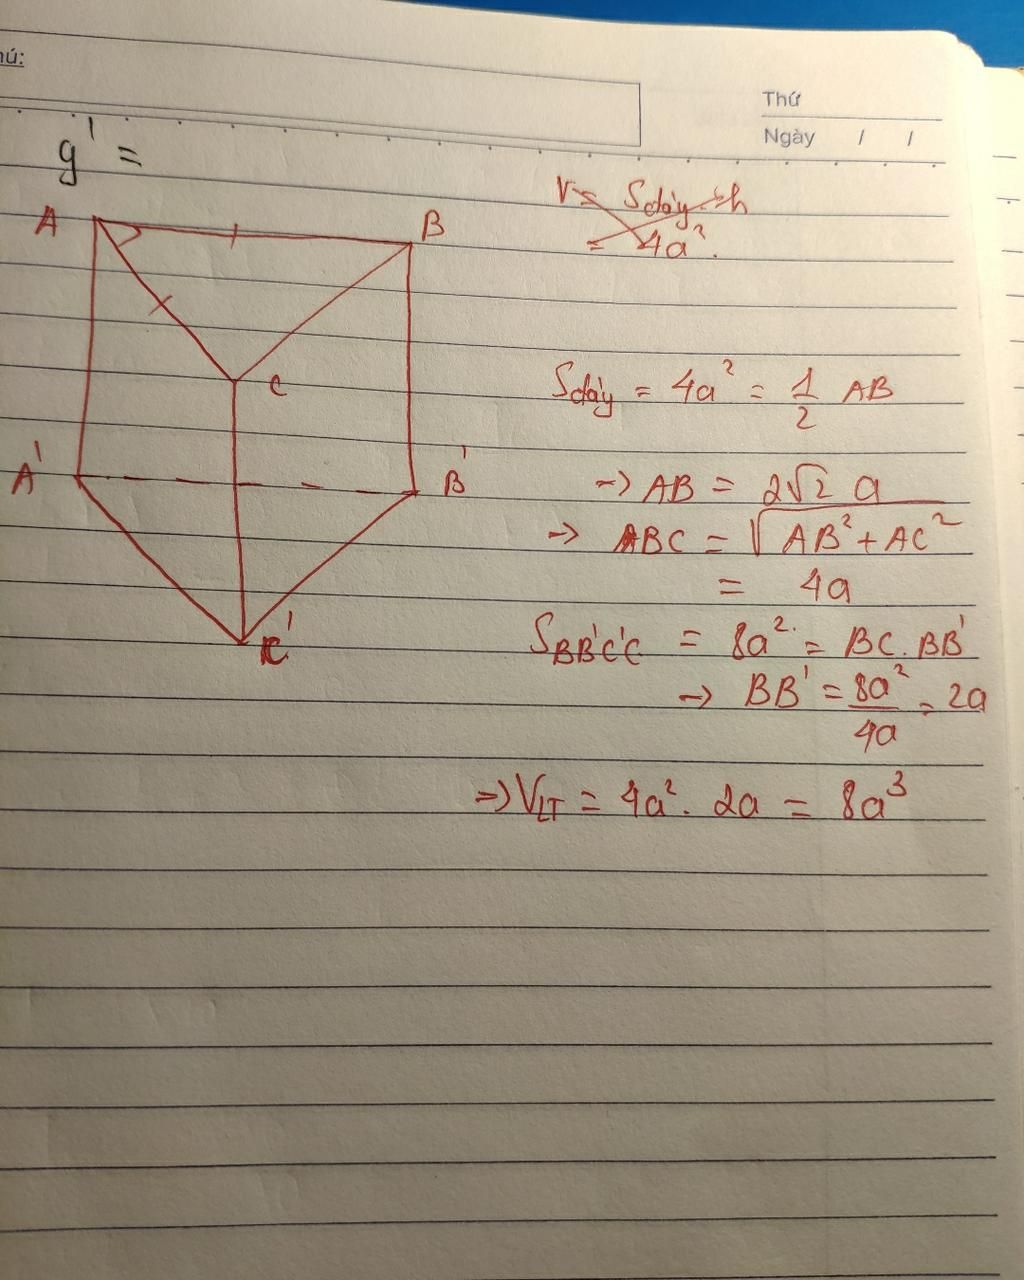 hú:
Thứ
Ngày / /
g' =
A B
C
A' B'
C'
V = Sđáy . h
= 4a².
Sđáy = 4a² = 1/2 AB
→ AB = 2√2 a
→ BC = √(AB² + AC²)
= 4a
SBB'C'C = 8a² = BC . BB'
→ BB' = 8a²/4a = 2a
⇒ VLT = 4a² . 2a = 8a³